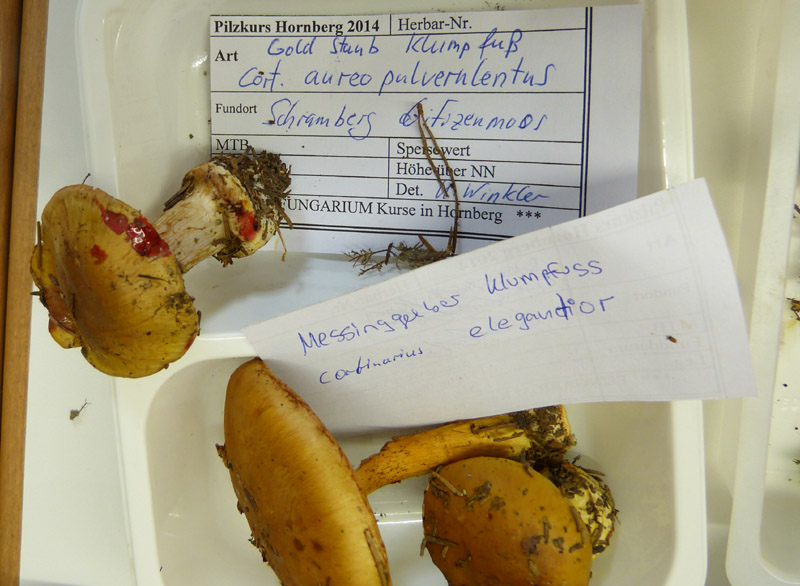 Pilzkurs Hornberg 2014 Herbar-Nr.
Art Gold Staub Klumpfuß
Cort. aureopulverulentus
Fundort Schramberg
MTB Speisewert
Höhe über NN
Det. W. Winkler
FUNGARIUM Kurse in Hornberg ***
Messinggelber Klumpfuss
elegantior